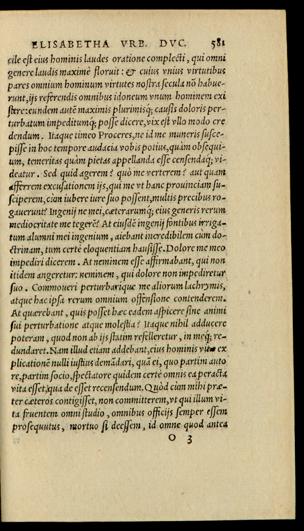 ELISABETHA VRB. DVC. 581
cile est eius hominis laudes oratione complecti, qui omni
genere laudis maximè floruit: & cuius vnius virtutibus
pares omnium hominum virtutes nostra secula nõ habue-
runt, ijs referendis omnibus idoneum vnum hominem exi
stere: eundem autẽ maximis plurimisq; causis doloris per-
turbatum impeditumq́; posse dicere, vix est vllo modo cre
dendum. Itaque timeo Proceres, ne id me muneris susce-
pisse in hoc tempore audacia vobis potius, quàm obsequi-
um, temeritas quàm pietas appellanda esse censendaq́; vi-
deatur. Sed quid agerem? quò me verterem? aut quam
afferrem excusationem ijs, qui me vt hanc prouinciam su-
sciperem, cùm iubere iure suo possent, multis precibus ro-
gauerunt? Ingenij ne mei, cæterarumq́; eius generis rerum
mediocritate me tegerẽ? At eiusdẽ ingenij fontibus irriga-
tum alumni mei ingenium, aiebant incredibilem cùm do-
ctrinam, tum certè eloquentiam hausisse. Dolore me meo
impediri dicerem. At neminem esse affirmabant, qui non
itidem angeretur: neminem, qui dolore non impediretur
suo. Commoueri perturbarique me aliorum lachrymis,
atque hac ipsa rerum omnium offensione contenderem.
At quærebant, quis posset hæc eadem aspicere sine animi
sui perturbatione atque molestia? Itaque nihil adducere
poteram, quod non ab ijs statim refelleretur, in meq́; re-
dundaret. Nam illud etiam addebant, eius hominis vitæ ex
plicationẽ nulli iustius demãdari, quã ei, quo partim auto
re, partim socio, spectatore quidem certè omnis ea peracta
vita esset, qua de esset recensendum. Quòd cùm mihi præ-
ter cæteros contigisset, non committerem, vt qui illum vi-
ta fruentem omni studio, omnibus officijs semper essem
prosequutus, mortuo si deessem, id omne quod antea
O 3